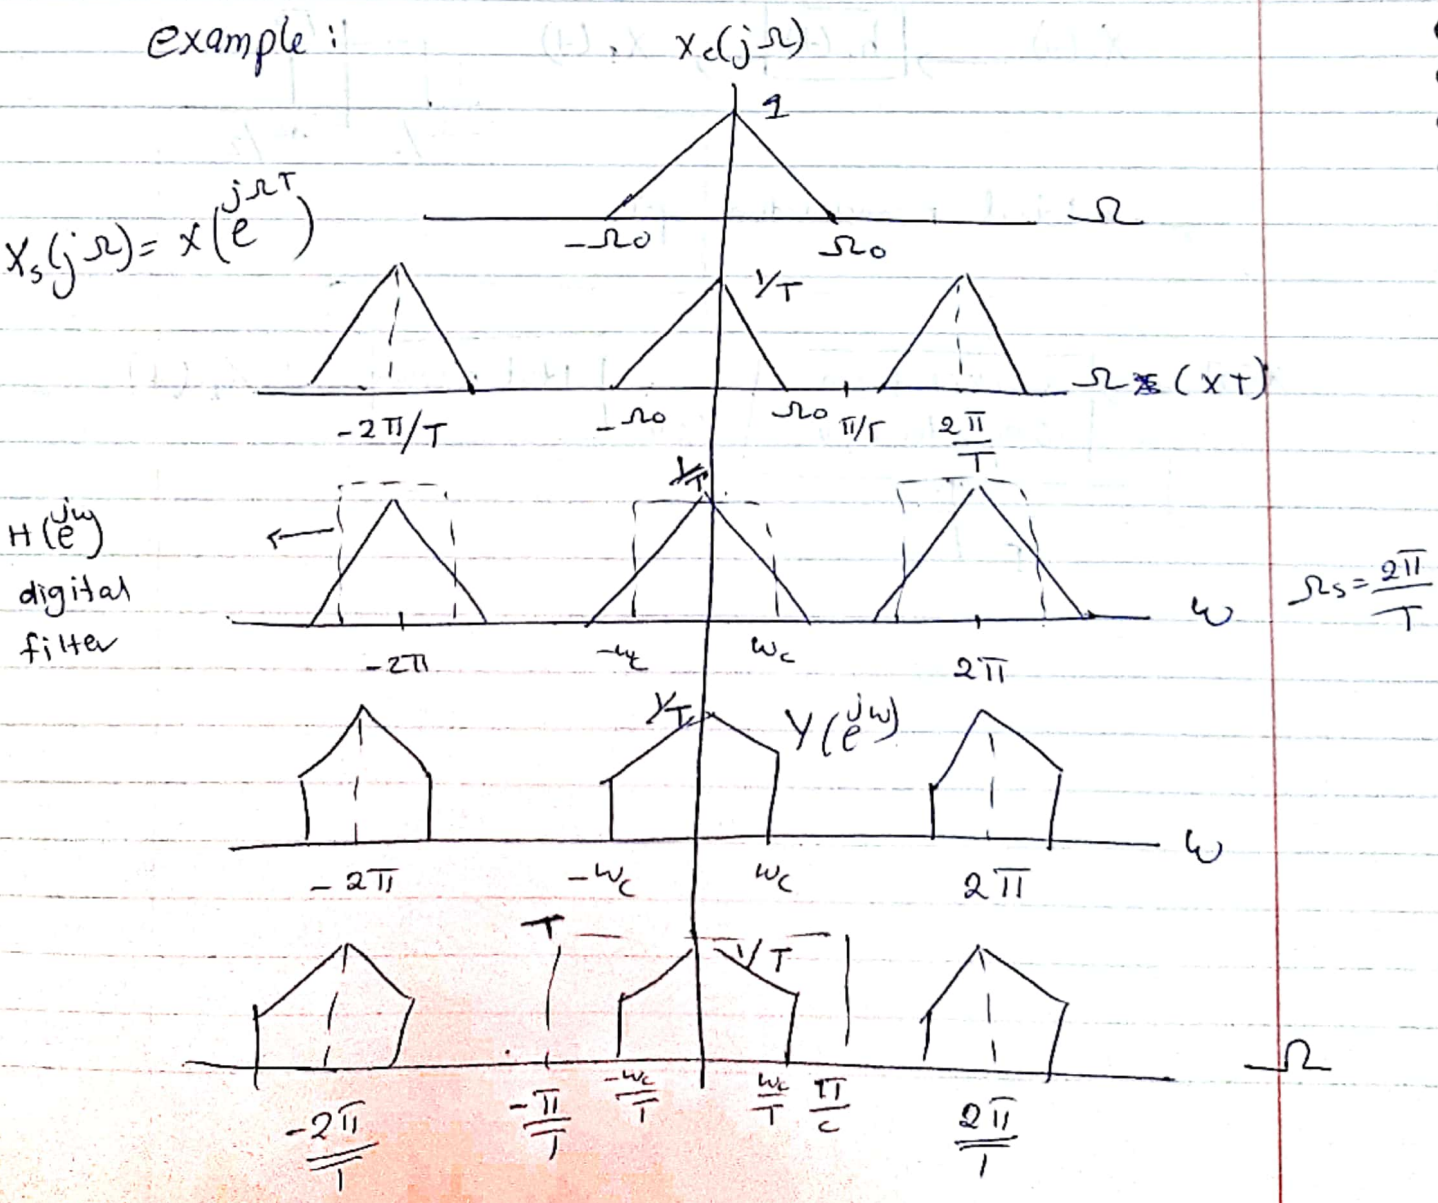 example :
Xc(jΩ)
1
-Ω0 Ω0 Ω
Xs(jΩ) = X(e^jΩT)
1/T
-2π/T -Ω0 Ω0 π/T 2π/T Ω (xT)
1/T
H(e^jω)
digital
filter
-2π -ωc ωc 2π ω
Ωs = 2π/T
1/T Y(e^jω)
-2π -ωc ωc 2π ω
T
1/T
-2π/T -π/T -ωc/T ωc/T 2π/T Ω